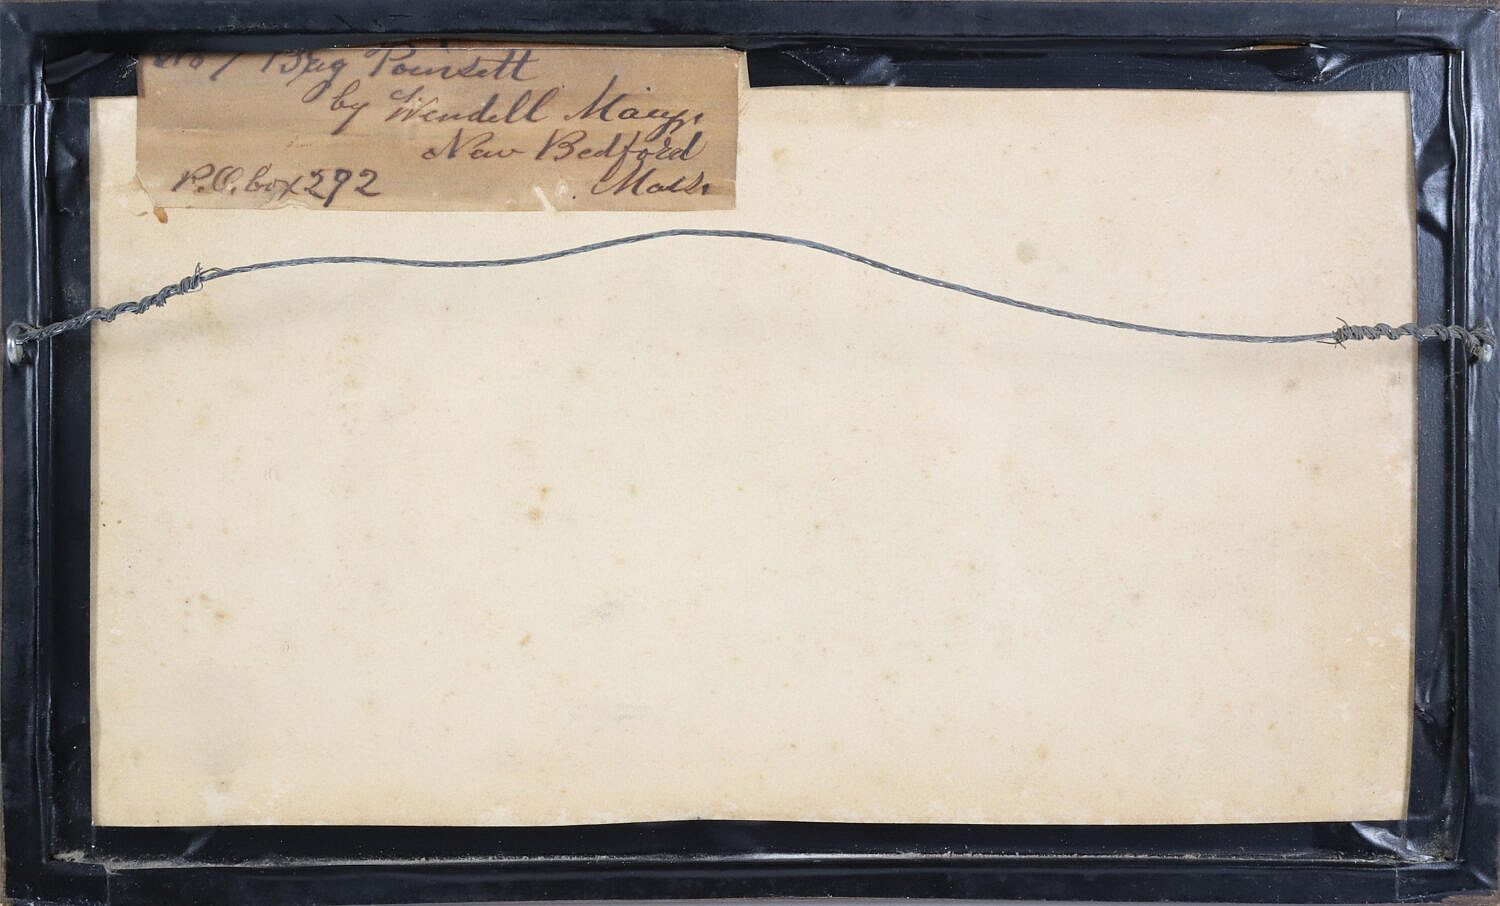 No 7 Brig Poinsett
by Wendell Macy.
New Bedford
P.O. box 292 Mass.